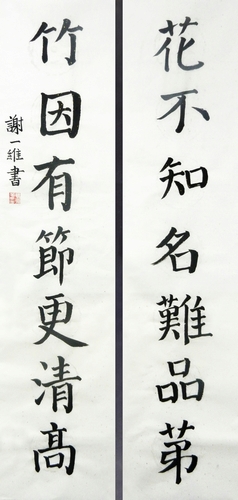 花不知名難品第
竹因有節更清高
謝一維書